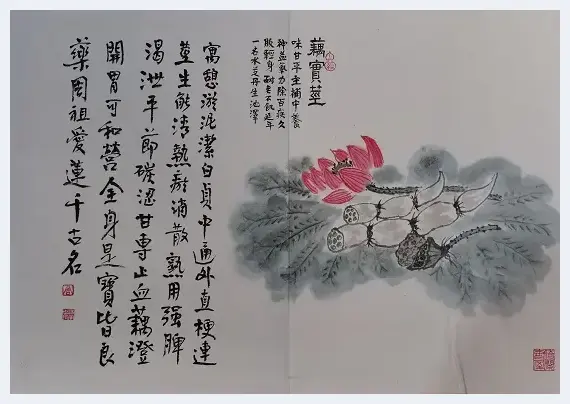 藕實莖
味甘平主補中養
神益氣力除百疾久
服輕身耐老不飢延年
一名水芝丹生池澤
寓憩淤泥潔白貞中通外直梗連
莖生能清熱瘀消散熟用强脾
渴泄平節碳澀甘專止血藕澄
開胃可和營全身是寶皆良
藥周祖愛蓮千古名